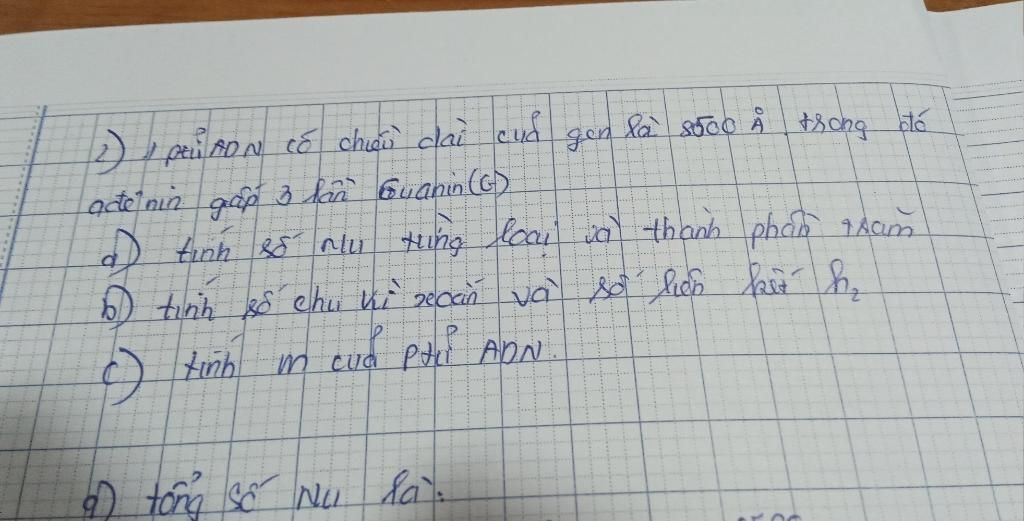 2) 1 ptử ADN có chiều dài cuả gen là 8500 Å trong đó
ađênin gấp 3 lần Guanin(G)
a) tính số nu từng loại và thành phần trăm
b) tính số chu kì xoắn và số liên kết h2
c) tính m cuả ptử ADN.
a) tổng số Nu là: